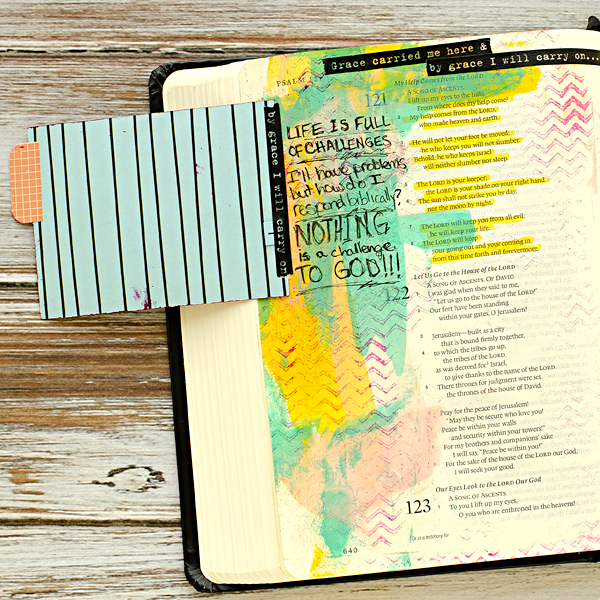 Grace carried me here &
by grace I will carry on...
PSALM
by grace I will carry on
LIFE IS FULL
OF CHALLENGES
I'll have problems
but how do I
respond biblically?
NOTHING
is a challenge
TO GOD!!!
121
My Help Comes from the LORD
A SONG OF ASCENTS.
I lift up my eyes to the hills.
From where does my help come?
2 My help comes from the LORD,
who made heaven and earth.
3 He will not let your foot be moved;
he who keeps you will not slumber.
4 Behold, he who keeps Israel
will neither slumber nor sleep.
5 The LORD is your keeper;
the LORD is your shade on your right hand.
6 The sun shall not strike you by day,
nor the moon by night.
7 The LORD will keep you from all evil;
he will keep your life.
8 The LORD will keep
your going out and your coming in
from this time forth and forevermore.
Let Us Go to the House of the LORD
122
A SONG OF ASCENTS. OF DAVID.
I was glad when they said to me,
"Let us go to the house of the LORD!"
2 Our feet have been standing
within your gates, O Jerusalem!
3 Jerusalem—built as a city
that is bound firmly together,
4 to which the tribes go up,
the tribes of the LORD,
as was decreed for Israel,
to give thanks to the name of the LORD.
5 There thrones for judgment were set,
the thrones of the house of David.
6 Pray for the peace of Jerusalem!
"May they be secure who love you!
7 Peace be within your walls
and security within your towers!"
8 For my brothers and companions' sake
I will say, "Peace be within you!"
9 For the sake of the house of the LORD our God,
I will seek your good.
Our Eyes Look to the LORD Our God
123
A SONG OF ASCENTS.
To you I lift up my eyes,
O you who are enthroned in the heavens!
Or as a testimony for
640